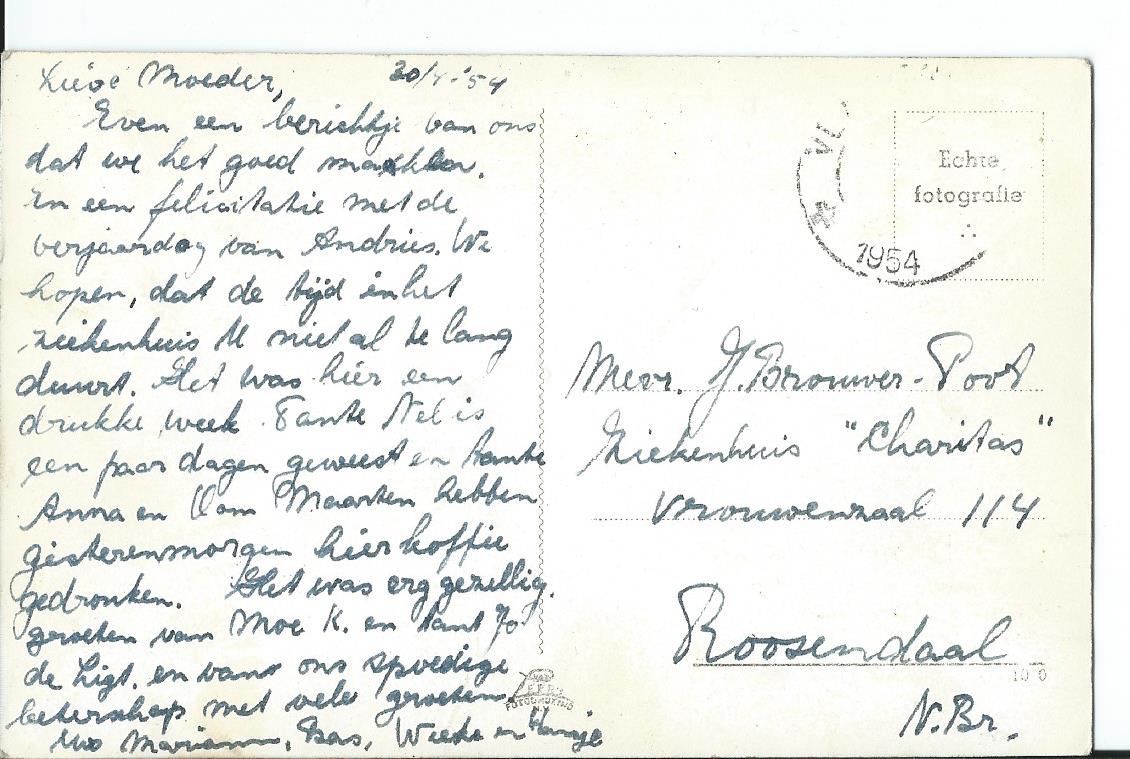 Lieve Moeder, 30/4-'54
Even een berichtje van ons
dat we het goed maken.
En een felicitatie met de
verjaardag van Andries. We
hopen, dat de tijd in het
ziekenhuis U niet al te lang
duurt. Het was hier een
drukke week. Tante Nel is
een paar dagen geweest en tante
Anna en Oom Maarten hebben
gisterenmorgen hier koffie
gedronken. Het was erg gezellig.
groeten van Moe K. en tant Jo
de Ligt. en vans ons spoedige
beterschap met vele groeten.
Uw Mariann, Bas, Wieke en Hansje
1954
Echte
fotografie
Mevr. J. Brouwer-Poot
Ziekenhuis "Charitas"
Vrouwenzaal 114
Roosendaal
N.Br.
FOTODRUKIND
N.V.